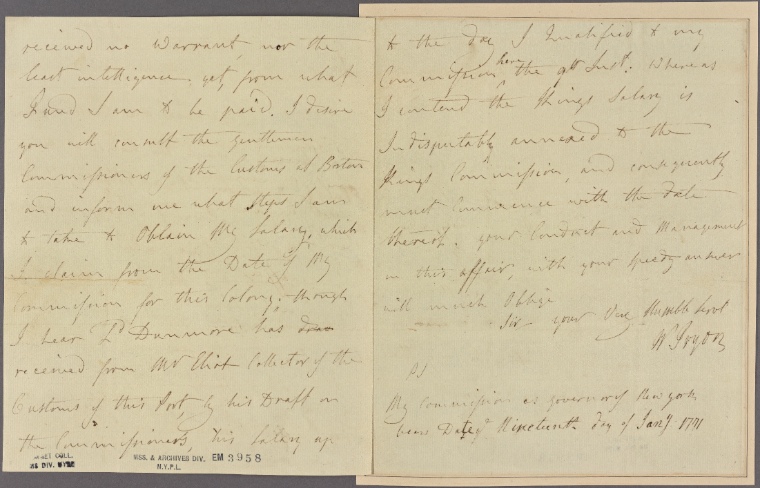 received no Warrant, nor the
least intelligence yet, from what
Fund I am to be paid. I desire
you will consult the gentlemen
Commissioners of the Customs at Boston
and inform me what steps I am
to take to Obtain My Salary, which
I claim from the Date of My
Commission for this Colony, though
I hear Ld Dunmore has
received from Mr Eliot Collector of the
Customs of this Port, by his Draft on
the Commissioners, his Salary up
MSS. & ARCHIVES DIV.
N.Y.P.L.
EM 3958
to the day I Published my
Commission here, the 9th Inst: Whereas
I contend the Kings Salary is
Indisputably annexed to the
Kings Commission, and consequently
must Commence with the date
thereof. your Conduct and Management
in this affair, with your speedy answer
will much Oblige
Sir your Very Humble Servt
Wm Tryon
PS
My Commission as governor of New york
bears Date ye Nineteenth day of Jany 1771